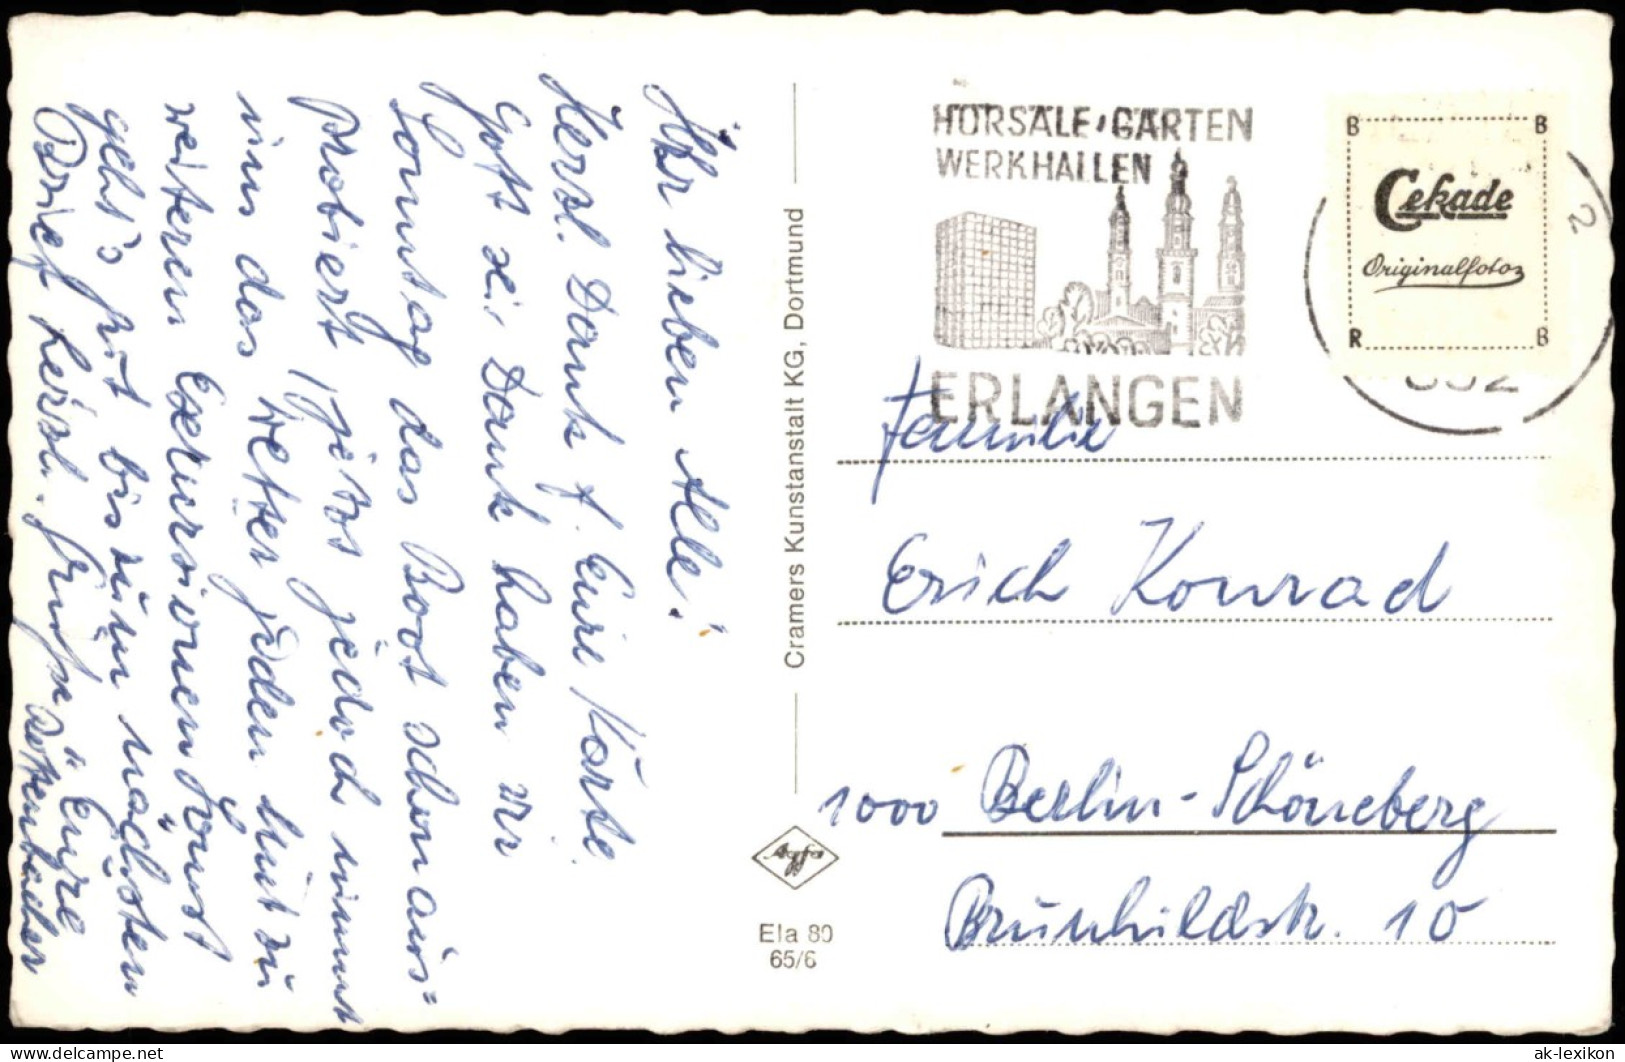 Ihr lieben Alle!
Herzl. Dank f. Eure Karte.
Gott sei Dank haben wir
Sonntag das Boot schon aus=
probiert, jetzt jedoch nimmt
uns das Wetter jeden Mut zu
weiteren Exkursionen. Sonst
geht's gut bis zum nächsten
Brief herzl. Grüße Eure
HÖRSÄLE·GÄRTEN
WERKHALLEN
ERLANGEN
2
852
B B
Cekade
Originalfotos
R B
Cramers Kunstanstalt KG, Dortmund
Agfa
Ela 80
65/6
Familie
Erich Konrad
1000 Berlin-Schöneberg
Brunhildstr. 10
ak-lexikon
delcampe.net